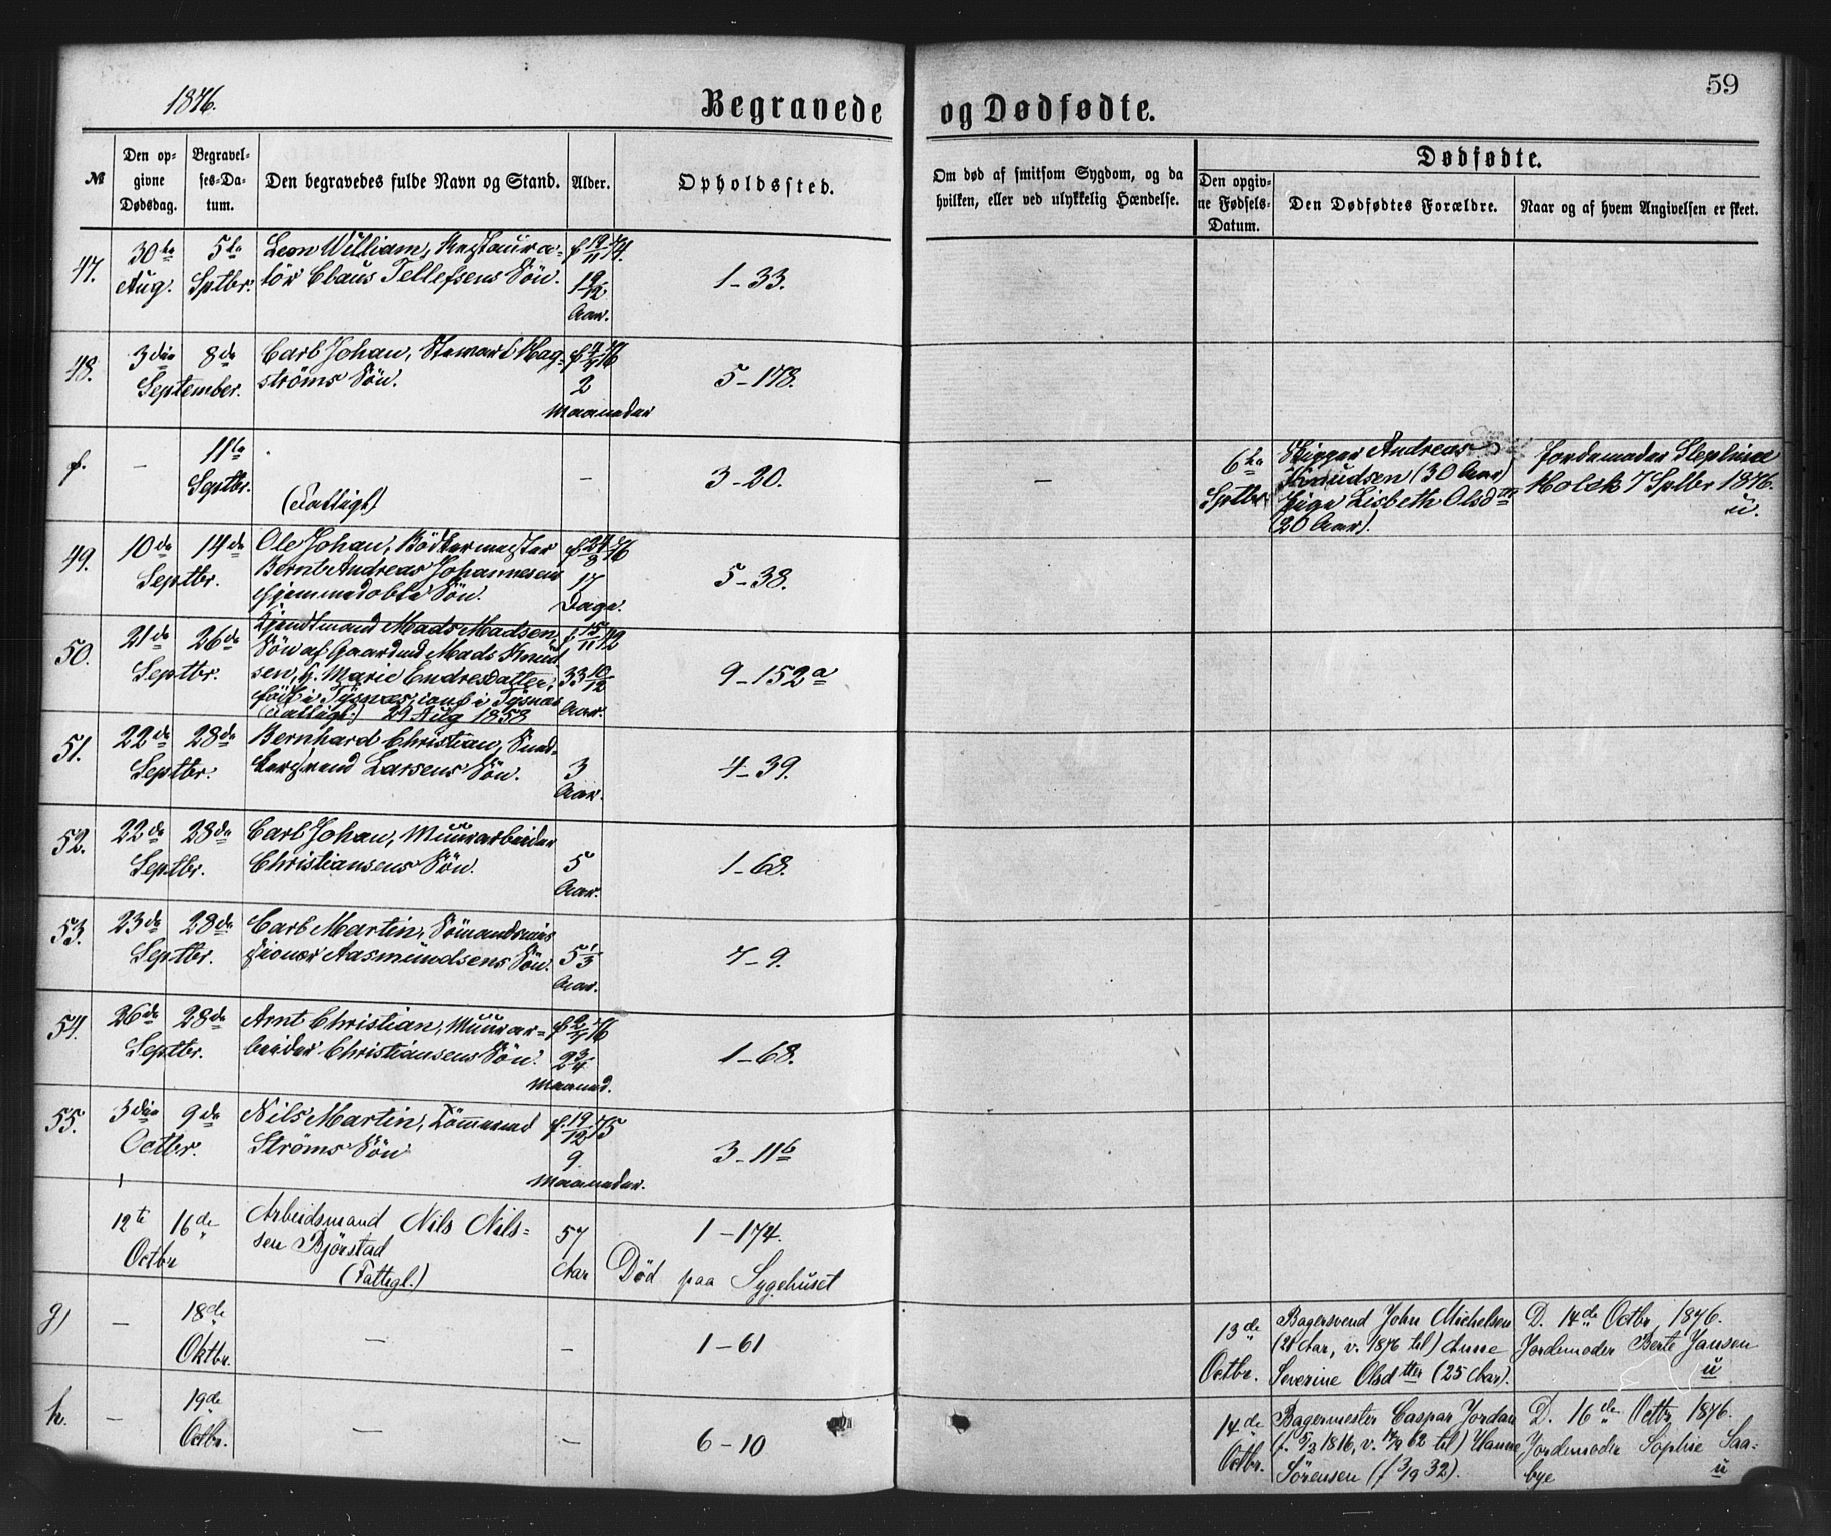 1876.
Begravede og Dødfødte.
59
№
Den opgivne Dødsdag.
Begravelses-Datum.
Den begravedes fulde Navn og Stand.
Alder.
Opholdssted.
Om død af smitsom Sygdom, og da hvilken, eller ved ulykkelig Hændelse.
Dødfødte.
Den opgivne Fødsels-Datum.
Den Dødfødtes Forældre.
Naar og af hvem Angivelsen er skeet.
47.
30te Aug.
5te Sptbr.
Leon William, Restaura-
tör Claus Tellefsens Sön.
f 19/11 74.
1 9/12 Aar.
1-33.
48.
3die
8de
September.
Carl Johan, Stewart Hag-
ströms Sön.
2 Maaneder
5-178.
f.
-
11te Septbr.
(Fattigl)
-
3-20.
-
6te Sptbr.
Skipper Andreas
Knudsen (30 Aar)
Pige Lisbeth Olsdtter
(20 Aar).
Jordemoder Stephine
Holck 7 Sptbr 1876.
u.
49.
10de
14de
Septbr.
Ole Johan, Bödkermester
Bernt Andreas Johannesens
hjemmedöbte Sön.
f 24/8 76
17 Dage.
5-38.
50.
21de
26de
Septbr.
Mads Madsen,
Sön af Gaardmd Mads Knud-
sen, H. Marie Endresdatter,
föd i Tysnæs, conf i Tysnæs
(Fattigl.) 29 Aug 1858
f 15/11 42
33 10/12 Aar.
9-152a
51.
22de
28de
Septbr.
Bernhard Christian,
Larsens Sön.
3 Aar.
4-39.
52.
22de
28de
Septbr.
Carl Johan, Muurarbeider
Christiansens Sön.
5 Aar.
1-68.
53.
23de
28de
Septbr.
Carl Martin,
Aasmundsens Sön.
5 1/3 Aar.
7-9.
54.
26de
28de
Septbr.
Arnt Christian, Muurar-
beider Christiansens Sön.
2 3/4 Maaned.
1-68.
55.
3die
9de
Octbr.
Nils Martin, Tömmermd
Ströms Sön
f. 19/12 75
9. Maaneder.
3-11b
12te
16de
Octbr
Arbeidsmand Nils Nils-
sen Bjørstad
(Fattigl.)
57 Aar
1-174.
Død paa Sygehuset
g)
-
18de Oktbr.
-
-
1-61
13de Octbr.
Bagersvend John Michelsen
(21 Aar, v. 1876 til) Anne
Severine Olsdtter (25 Aar).
D. 14de Octbr 1876.
Jordemoder Berte Jansen
u
h.
-
19de Octbr.
-
-
6-10
14de Octbr.
Bagermester Caspar Jordan
(f. 5/3 1816, v. 62 til) Hanne
Sörensen (f 3/9 32).
D. 16de Octbr 1876.
Jordemoder Sophie Saa-
bye
u